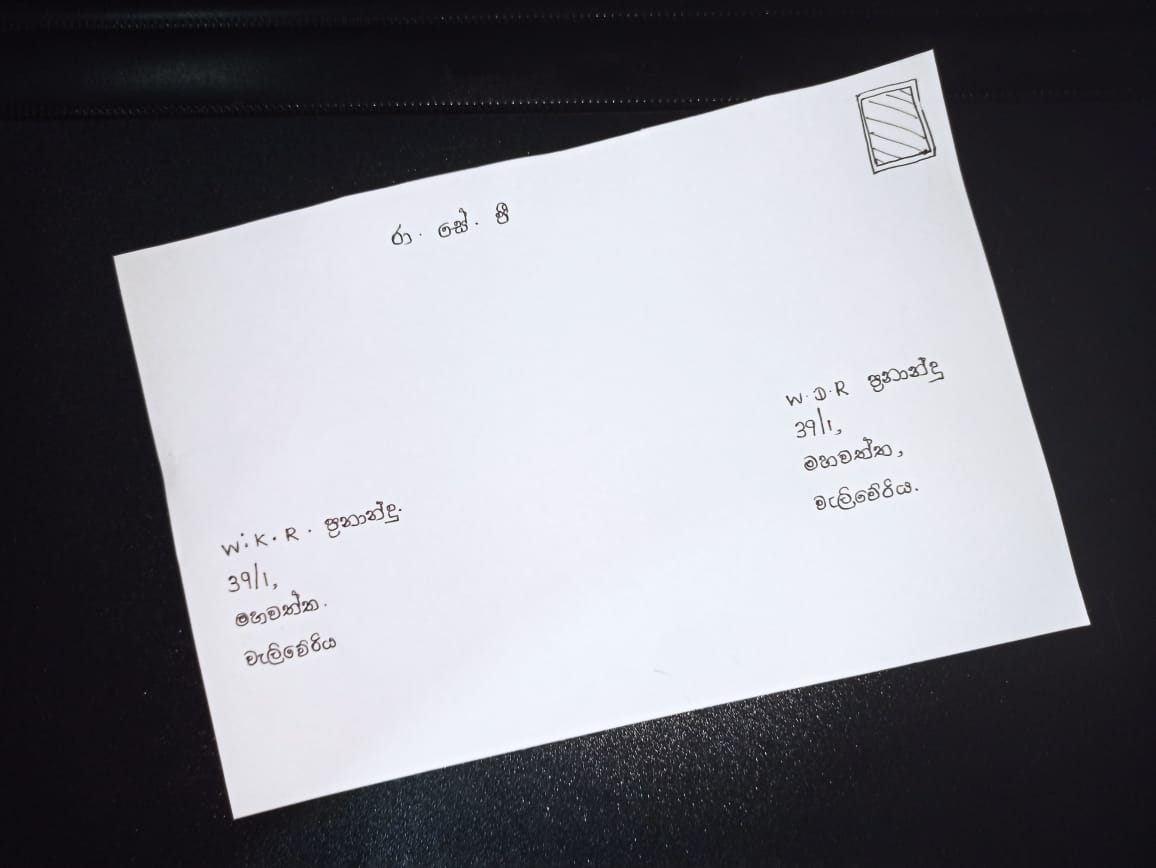 රා. සේ. පි
W.D.R ප්‍රනාන්දු
39/1,
මහවත්ත,
වැලිවේරිය.
W.K.R. ප්‍රනාන්දු.
39/1,
මහවත්ත.
වැලිවේරිය